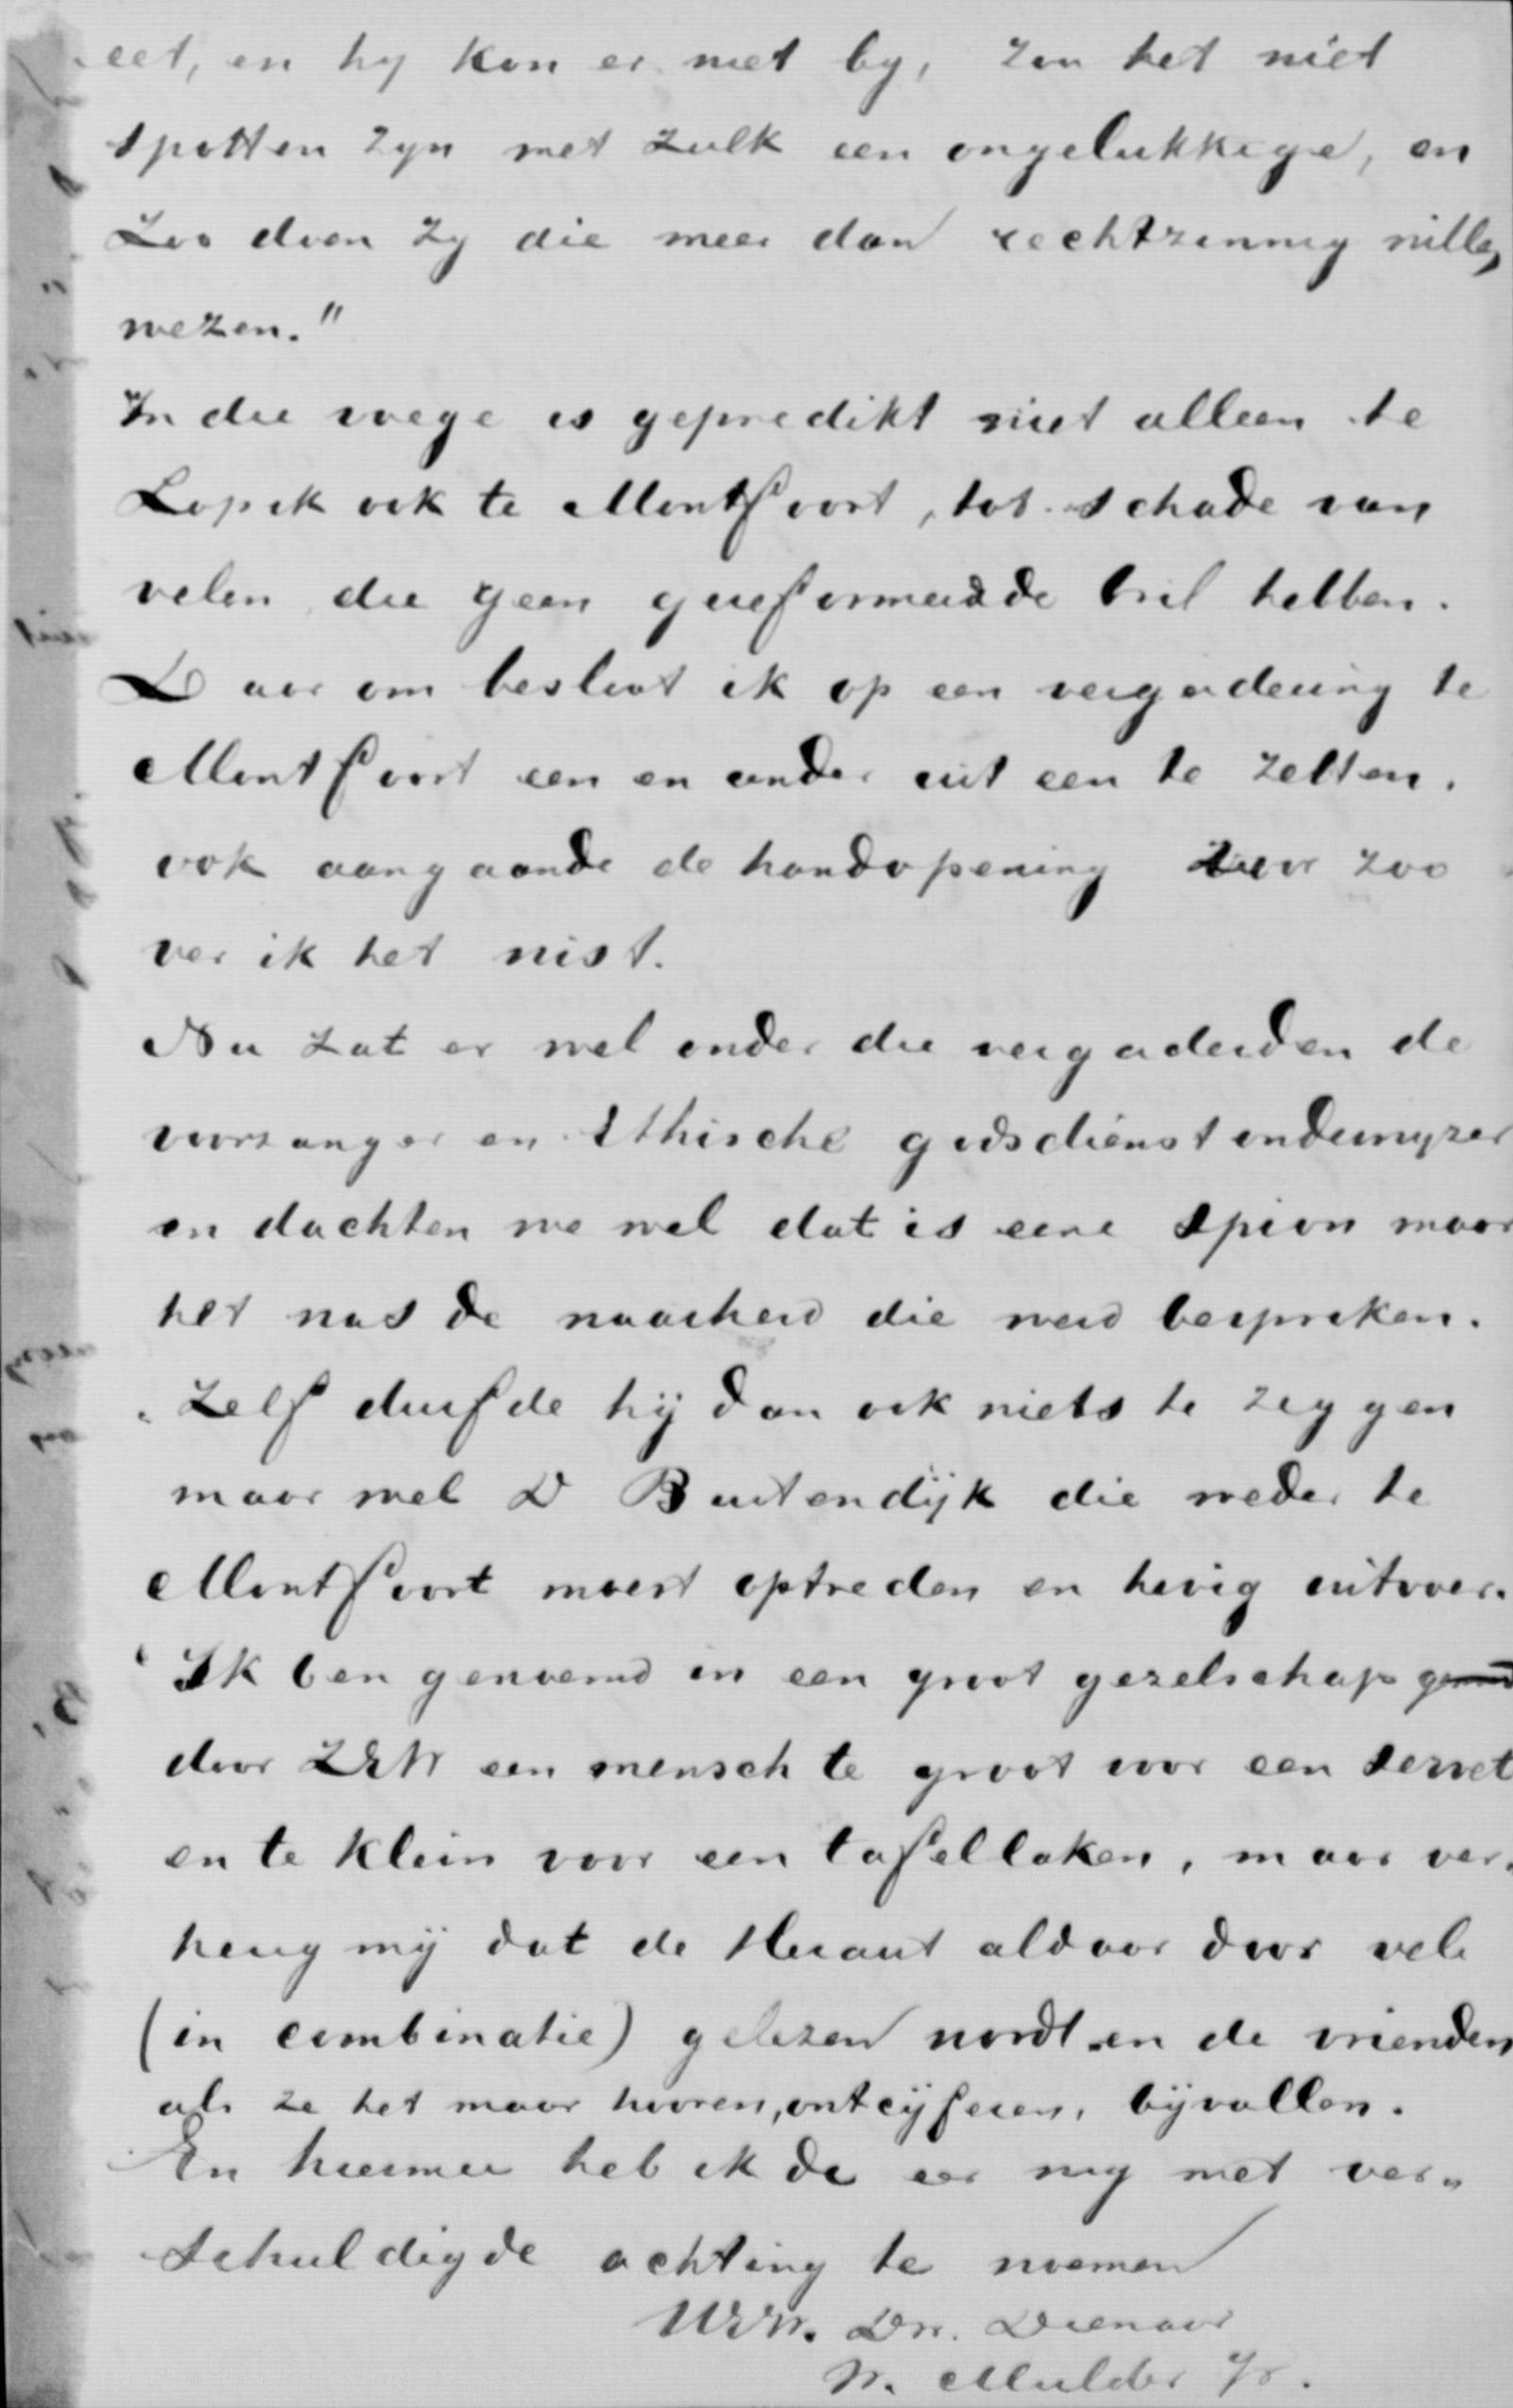 eet, en hy kon er niet by, zou het niet
spotten zyn met zulk een ongelukkige, en
Zoo doen zy die meer dan rechtzinnig willen
wezen."
In die wege is gepredikt niet alleen te
Lopik ook te Montfoort, tot schade van
velen die geen gereformeerde bril hebben.
Daar om besloot ik op een vergadering te
Montfoort een en ander uit een te zetten.
ook aangaande de handopening voor zoo
ver ik het wist.
Nu zat er wel onder die vergaderden de
voorzanger en Ethische godsdienst onderwyzer
en dachten we wel dat is eene spion maar
het was de waarheid die werd besproken.
Zelf durfde hij dan ook niets te zeggen
maar wel D Buitendijk die weder te
Montfoort moest optreden en hevig uitvoer.
"Ik ben genoemd in een groot gezelschap
door ZEW een mensch te groot voor een servet
en te klein voor een tafellaken, maar ver,
heug mij dat de Heraut aldaar door vele
(in combinatie) gelezen wordt en de vrienden
als ze het maar hooren, ontcijferen, bijvallen.
En hiermee heb ik de eer my met ver„
schuldigde achting te noemen
UEW. Dw. Dienaar
W. Mulder Jr.